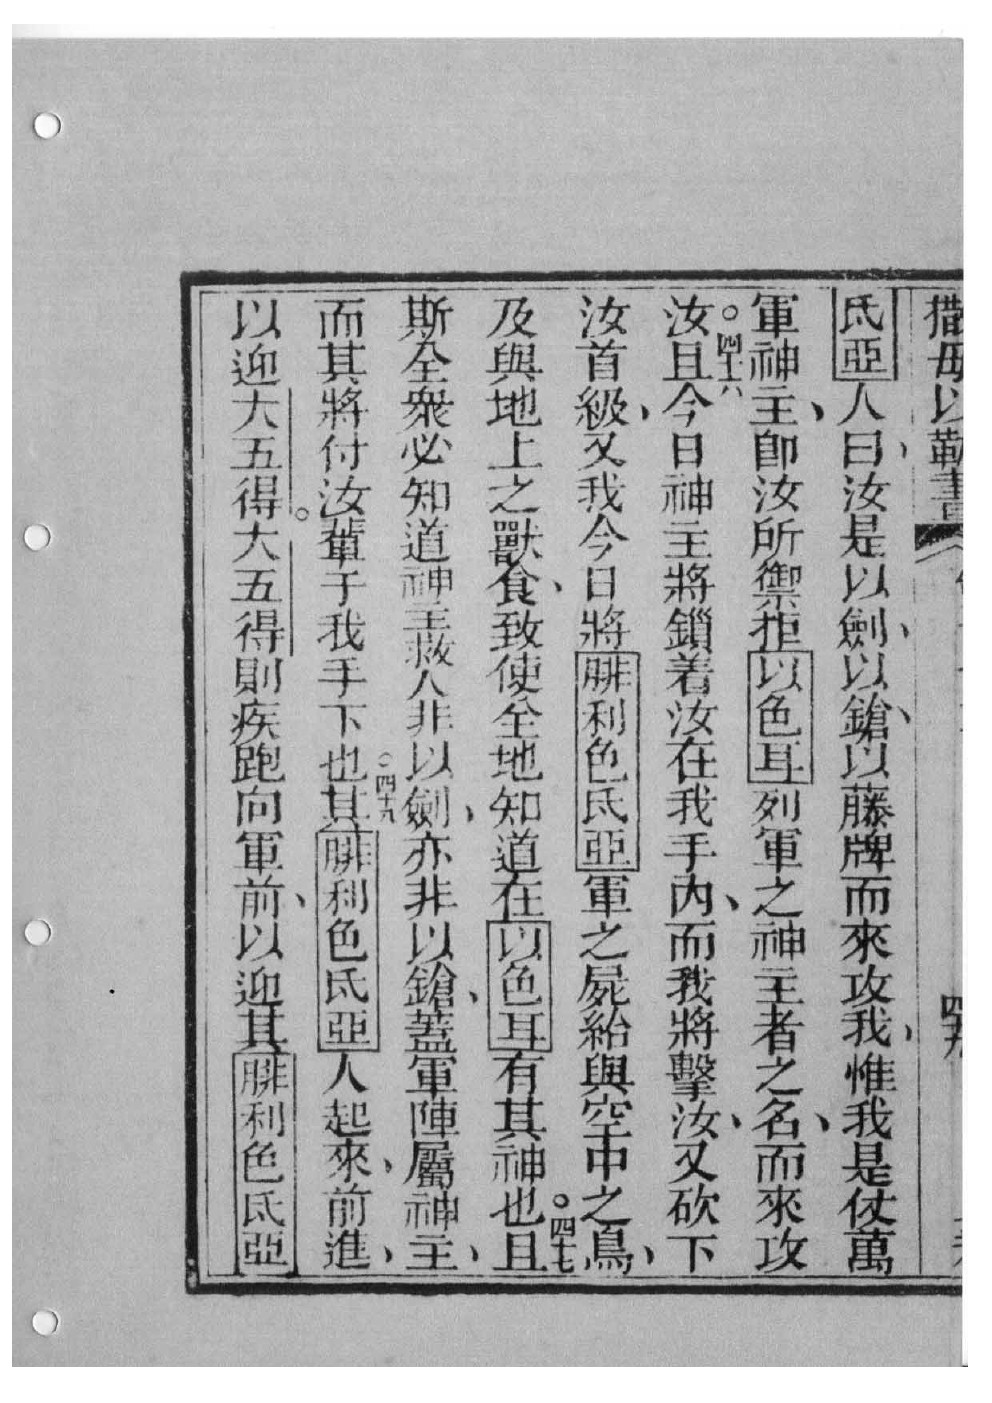 撒毋以勒書
四九
氐亞人曰、汝是以劍、以鎗、以藤牌而來攻我、惟我是仗萬
軍神主、卽汝所禦拒以色耳列軍之神主者之名、而來攻
汝。四十六且今日神主將鎖着汝在我手內、而我將擊汝、又砍下
汝首級、又我今日將腓利色氐亞軍之屍給與空中之鳥、
及與地上之獸食、致使全地知道在以色耳有其神也。四十七且
斯全衆必知道神主救人非以劍、亦非以鎗、蓋軍陣屬神主、
而其將付汝輩于我手下也。四十九其腓利色氐亞人起來、前進、
以迎大五得。大五得則疾跑向軍前、以迎其腓利色氐亞